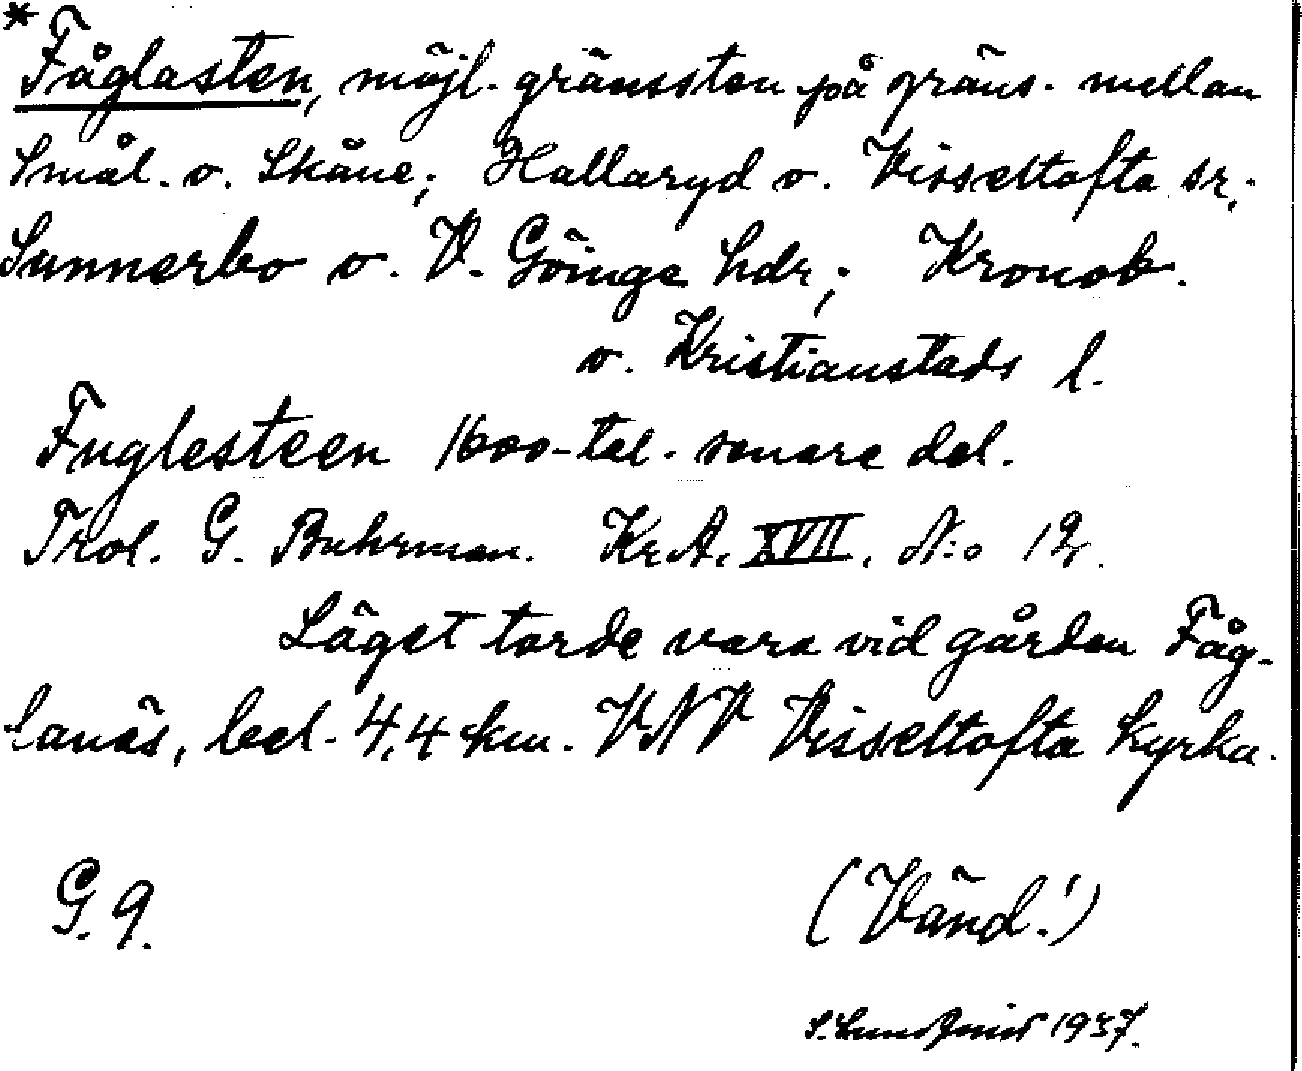 *Fåglasten, möjl. gränssten på gräns. mellan
Smål. o. Skåne; Hallaryd o. Visseltofta sr.;
Sunnerbo o. V. Göinge hdr; Kronob.
o. Kristianstads l.
Fuglesteen 1600-tal. senare del.
Trol. G. Buhrman. Kr.A. XVII. N:o 12.
Läget torde vara vid gården Fåg-
lanäs, bel. 4,4 km. VNV Visseltofta kyrka.
G. 9.
(Vänd!)
1937.